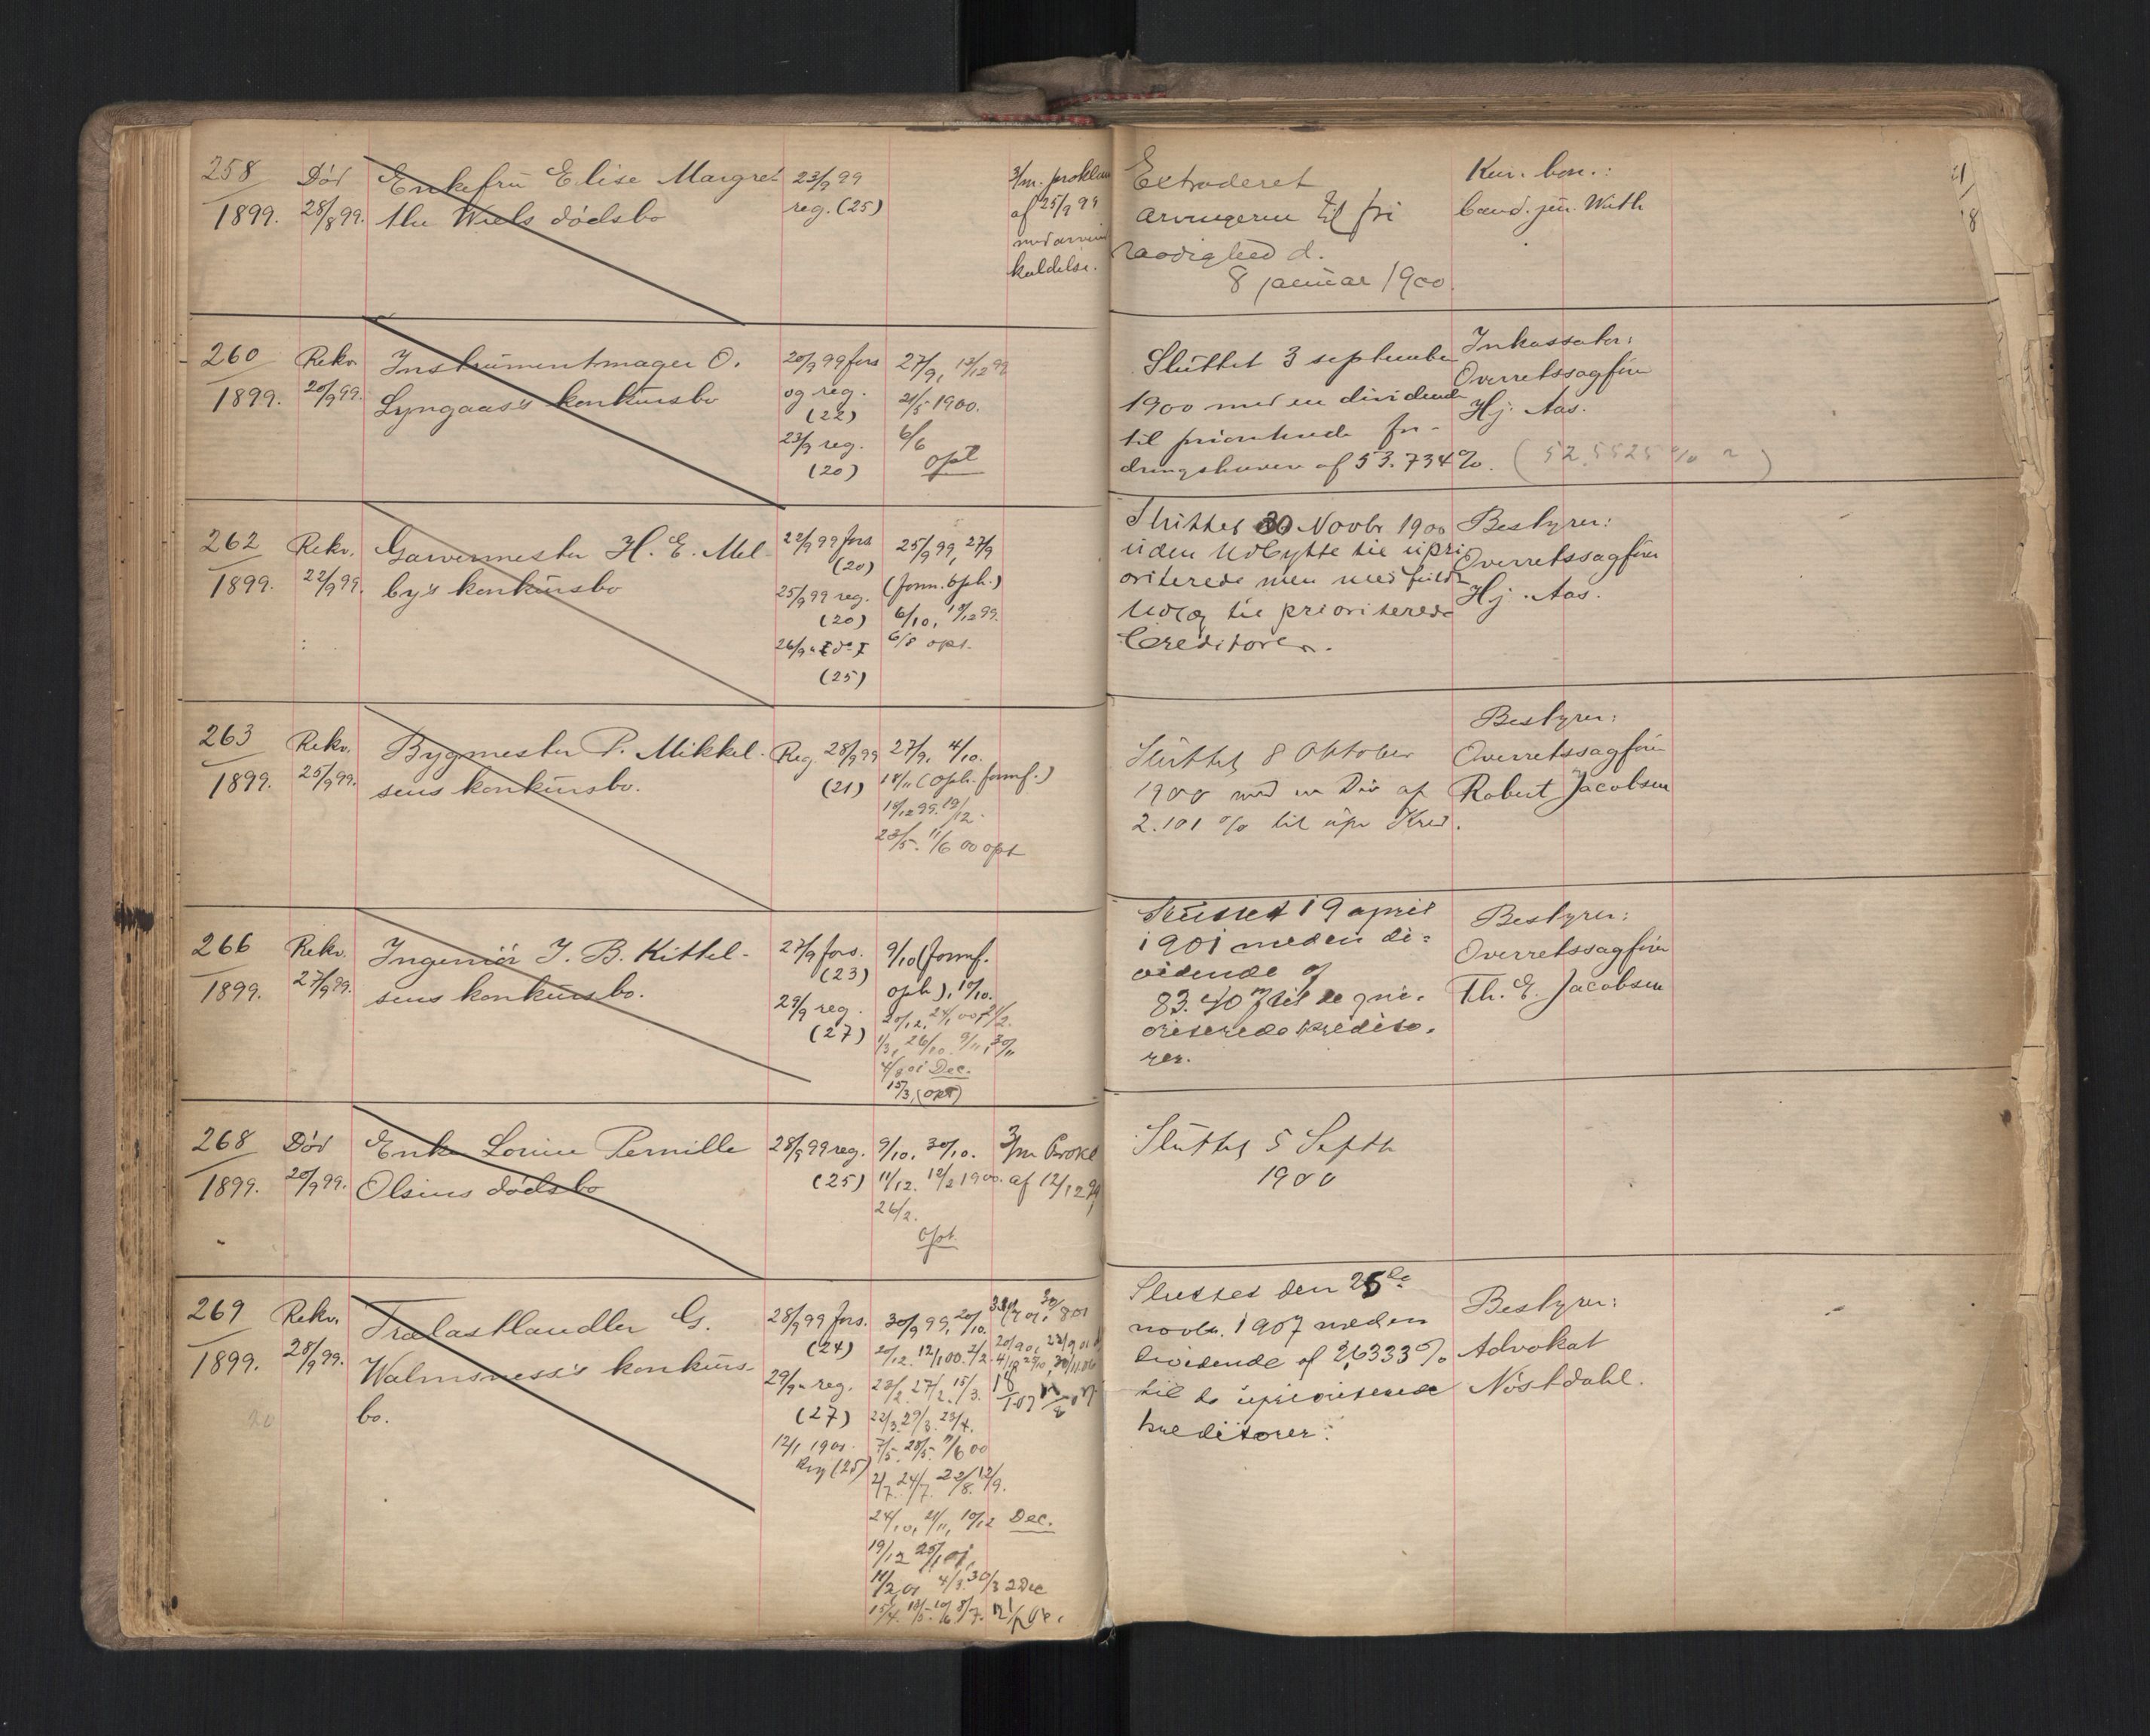 258
1899.
Död
28/8 99.
Enkefru Elise Margre-
the Wiels dödsbo
23/9 99
reg. (25)
3/m. proklam
af 25/9 99
med arvein
kaldelse.
Extraderet
arvingerne til fri
raadighed d.
8 januar 1900.
Kur. bon.:
Cand. jur. With
260
1899.
Rekv.
20/9 99.
Instrumentmager O.
Lyngaas's konkursbo
20/9 99 fors
og reg.
(22)
23/9 reg.
(20)
27/9, 13/12 99
21/5 1900.
6/6
opt
Sluttet 3 september
1900 med en dividende
til prioriterede for-
dringshavere af 53.734%.
(52.5525%)
Inkassator:
Overretssagfürer
Hj. Aas.
262
1899.
Rekv.
22/9 99.
Garvermester H. E. Mel-
by's konkursbo
22/9 99 fors
(20)
25/9 99 reg.
(20)
26/9
(25)
25/9 99, 27/9
(form. oph.)
6/10, 18/12 99.
6/8 opt.
Sluttet 30 Novbr 1900
uden Udbytte til upri
oriterede men med fuldt
Udlæg til prioriterede
Creditorer.
Bestyrer:
Overretssagfürer
Hj. Aas.
263
1899.
Rekv.
25/9 99.
Bygmester P. Mikkel-
sens konkursbo.
Reg 28/9 99
(21)
27/9, 4/10.
18/11 (oph. formf.)
18/12 99. 19/12.
23/5. 11/6 00 opt
Sluttet 8 Oktober
1900 med en Div af
2.101 % til upr Kred.
Bestyrer:
Overretssagfürer
Robert Jacobsen
266
1899.
Rekv.
27/9 99.
Ingeniör J. B. Kittel-
sens konkursbo.
27/9 fors.
(23)
29/9 reg.
(27)
9/10 (formf.
oph), 19/10.
Dec.
15/3, (opt)
Sluttet 19 april
1901 med en di-
vidende af
83.40 % til de pri-
oriterede kredito-
rer.
Bestyrer:
Overretssagfürer
Th. E. Jacobsen
268
1899.
Död
20/9 99.
Enke Lovise Pernille
Olsens dödsbo
28/9 99 reg.
(25)
9/10, 30/10.
11/12. 12/2 1900.
26/2.
opt.
3/m Prokl
af 12/12 99
Sluttet 5 Septb
1900
269
1899.
Rekv.
28/9 99.
Trælasthandler G.
Walmsness's konkurs-
bo.
28/9 99 fors.
(24)
29/9 reg.
(27)
12/1 1901.
Reg (25)
30/9 99, 20/10.
20/12. 12/1 00. 2/2.
23/2. 27/2. 15/3.
22/3. 29/3. 23/4.
7/5. 28/5. 11/6 00
2/7. 24/7. 22/8. 12/9.
24/10, 21/11, 10/12 Dec.
19/12 25/1 01,
11/2 01 4/3. 30/3 2 Dec
Sluttet den 25de
novbr. 1907 med en
dividende af 2,6333%
til de uprioriterede
kreditorer.
Bestyrer:
Advokat
Nöstdahl.